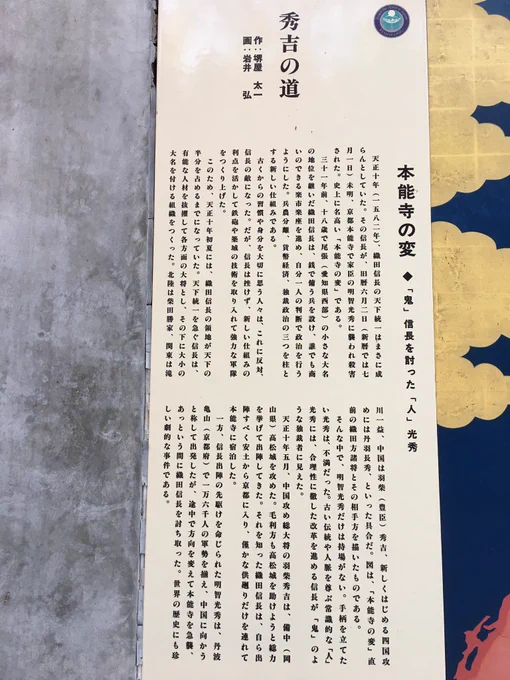 秀吉の道
作：堺屋 太一
画：岩井 弘
本能寺の変 ◆「鬼」信長を討った「人」光秀
天正十年（一五八二年）、織田信長の天下統一はまさに成
らんとしていた。その信長が、旧暦六月二日（新暦では七
月一日）未明、京都本能寺で家臣の明智光秀に襲われ殺害
された。史上に名高い「本能寺の変」である。
三十一年前、十八歳で尾張（愛知県西部）の小さな大名
の地位を継いだ織田信長は、銭で傭う兵を設け、誰でも商
いのできる楽市楽座を進め、自分一人の判断で政治を行う
ようにした。兵農分離、貨幣経済、独裁政治の三つを柱と
する新しい仕組みである。
古くからの習慣や身分を大切に思う人々は、これに反対、
信長の敵になった。だが、信長は挫けず、新しい仕組みの
利点を活かして鉄砲や築城の技術を取り入れて強力な軍隊
をつくり上げた。
このため、天正十年初夏には、織田信長の領地が天下の
半分を占めるまでになっていた。天下統一を急ぐ信長は、
有能な人材を抜擢して各方面の大将とし、その下に大小の
大名を付ける組織をつくった。北陸は柴田勝家、関東は滝
川一益、中国は羽柴（豊臣）秀吉、新しくはじめる四国攻
めには丹羽長秀、といった具合だ。図は、「本能寺の変」直
前の織田方諸将とその相手方を描いたものである。
そんな中で、明智光秀だけは持場がない。手柄を立てた
い光秀は、不満だった。古い伝統や人脈を尊ぶ常識的な「人」
光秀には、合理性に徹した改革を進める信長が「鬼」のよ
うな独裁者に見えた。
天正十年五月、中国攻め総大将の羽柴秀吉は、備中（岡
山県）高松城を攻めた。毛利方も高松城を助けようと総力
を挙げて出陣してきた。それを知った織田信長は、自ら出
陣すべく安土から京都に入り、僅かな供廻りだけを連れて
本能寺に宿泊した。
一方、信長出陣の先駆けを命じられた明智光秀は、丹波
亀山（京都府）で一万六千人の軍勢を揃え、中国に向かう
と称して出発したが、途中で方向を変えて本能寺を急襲、
あっという間に織田信長を討ち取った。世界の歴史にも珍
しい劇的な事件である。